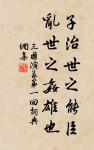 子治世之能臣
亂世之姦雄也
三國演義第一回詞典
網集